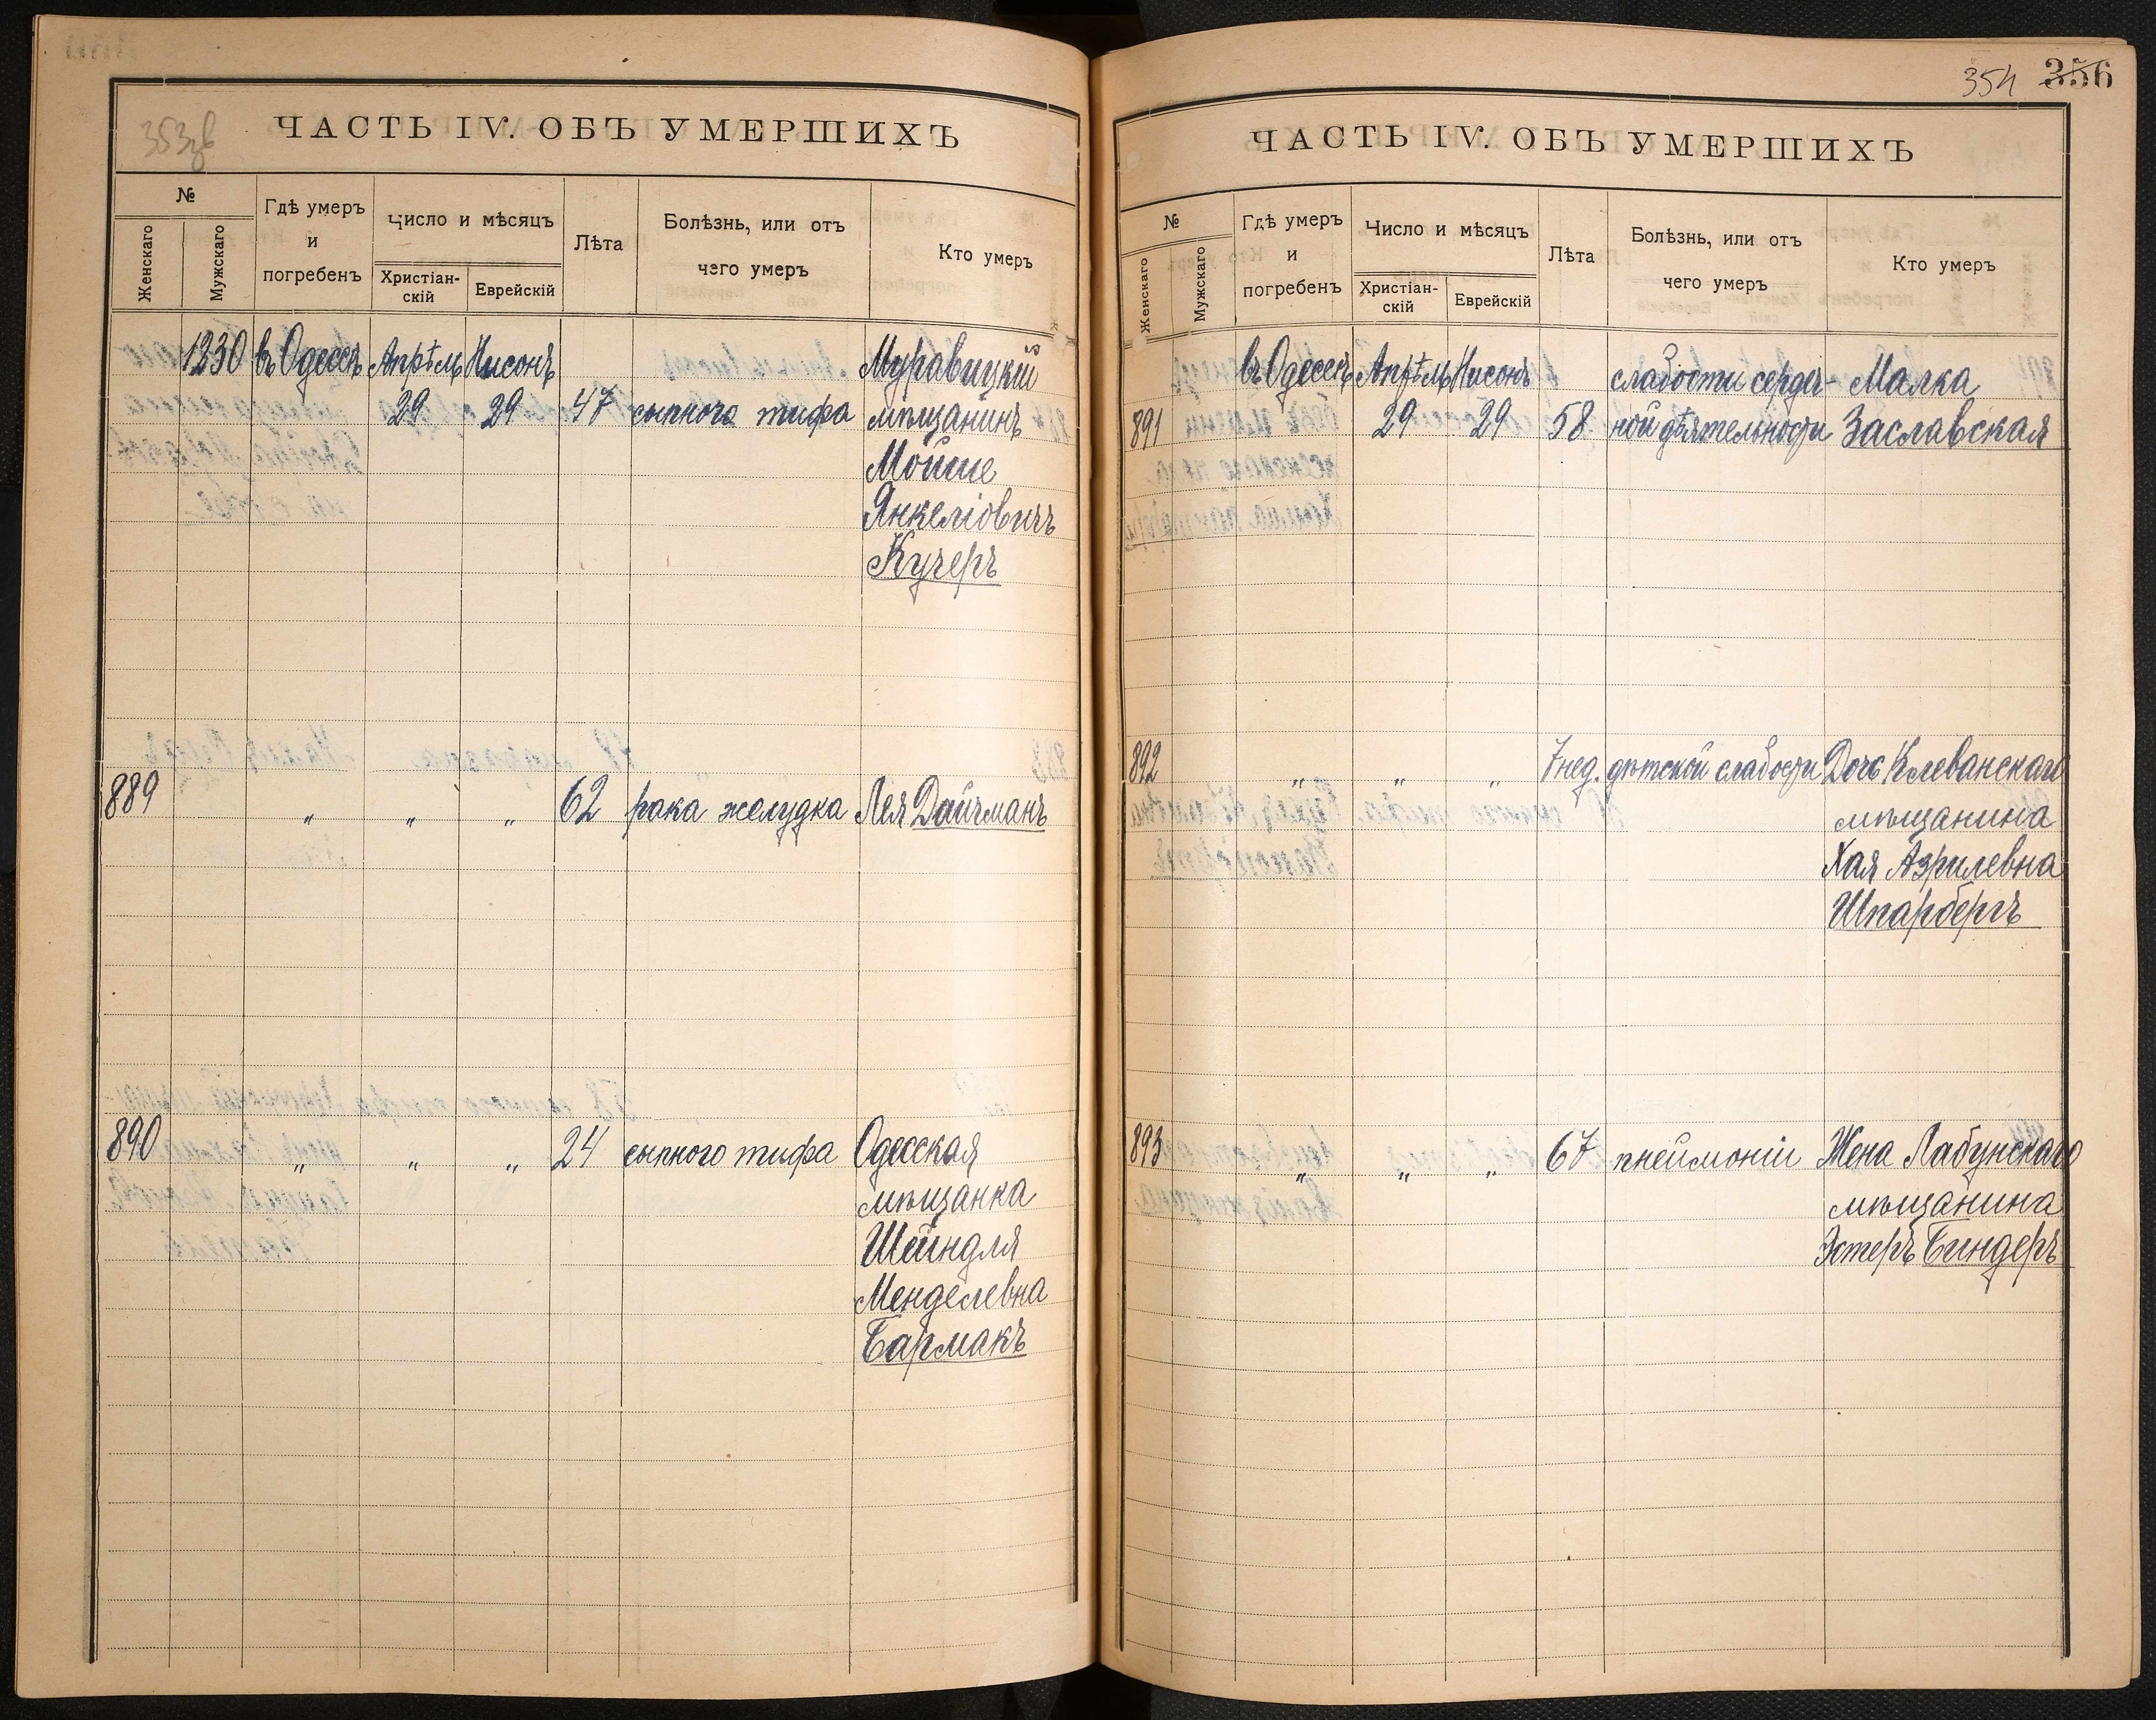 353 об
ЧАСТЬ IV. ОБЪ УМЕРШИХЪ
№
Женскаго
Мужскаго
Гдѣ умеръ
и
погребенъ
Число и мѣсяцъ
Христіан-
скій
Еврейскій
Лѣта
Болѣзнь, или отъ
чего умеръ
Кто умеръ
1330 въ Одессѣ Апрѣль Нисонъ Муравицкій
29 29 47 сыпного тифа мѣщанинъ
Мойше
Янкеліовичъ
Кучеръ
889 " " " 62 рака желудка Лея Дайчманъ
890 " " " 24 сыпного тифа Одесская
мѣщанка
Шейндля
Менделевна
Бармакъ
354 356
ЧАСТЬ IV. ОБЪ УМЕРШИХЪ
№
Женскаго
Мужскаго
Гдѣ умеръ
и
погребенъ
Число и мѣсяцъ
Христіан-
скій
Еврейскій
Лѣта
Болѣзнь, или отъ
чего умеръ
Кто умеръ
въ Одессѣ Апрѣль Нисонъ слабости сердеч- Малка
891 29 29 58 ной дѣятельности Заславская
892 " " " 7 нед. дѣтской слабости Дочь Клеванскаго
мѣщанина
Хая Азрилевна
Шпарбергъ
893 " " " 67 пнеймоніи Жена Лабунскаго
мѣщанина
Эстеръ Биндеръ